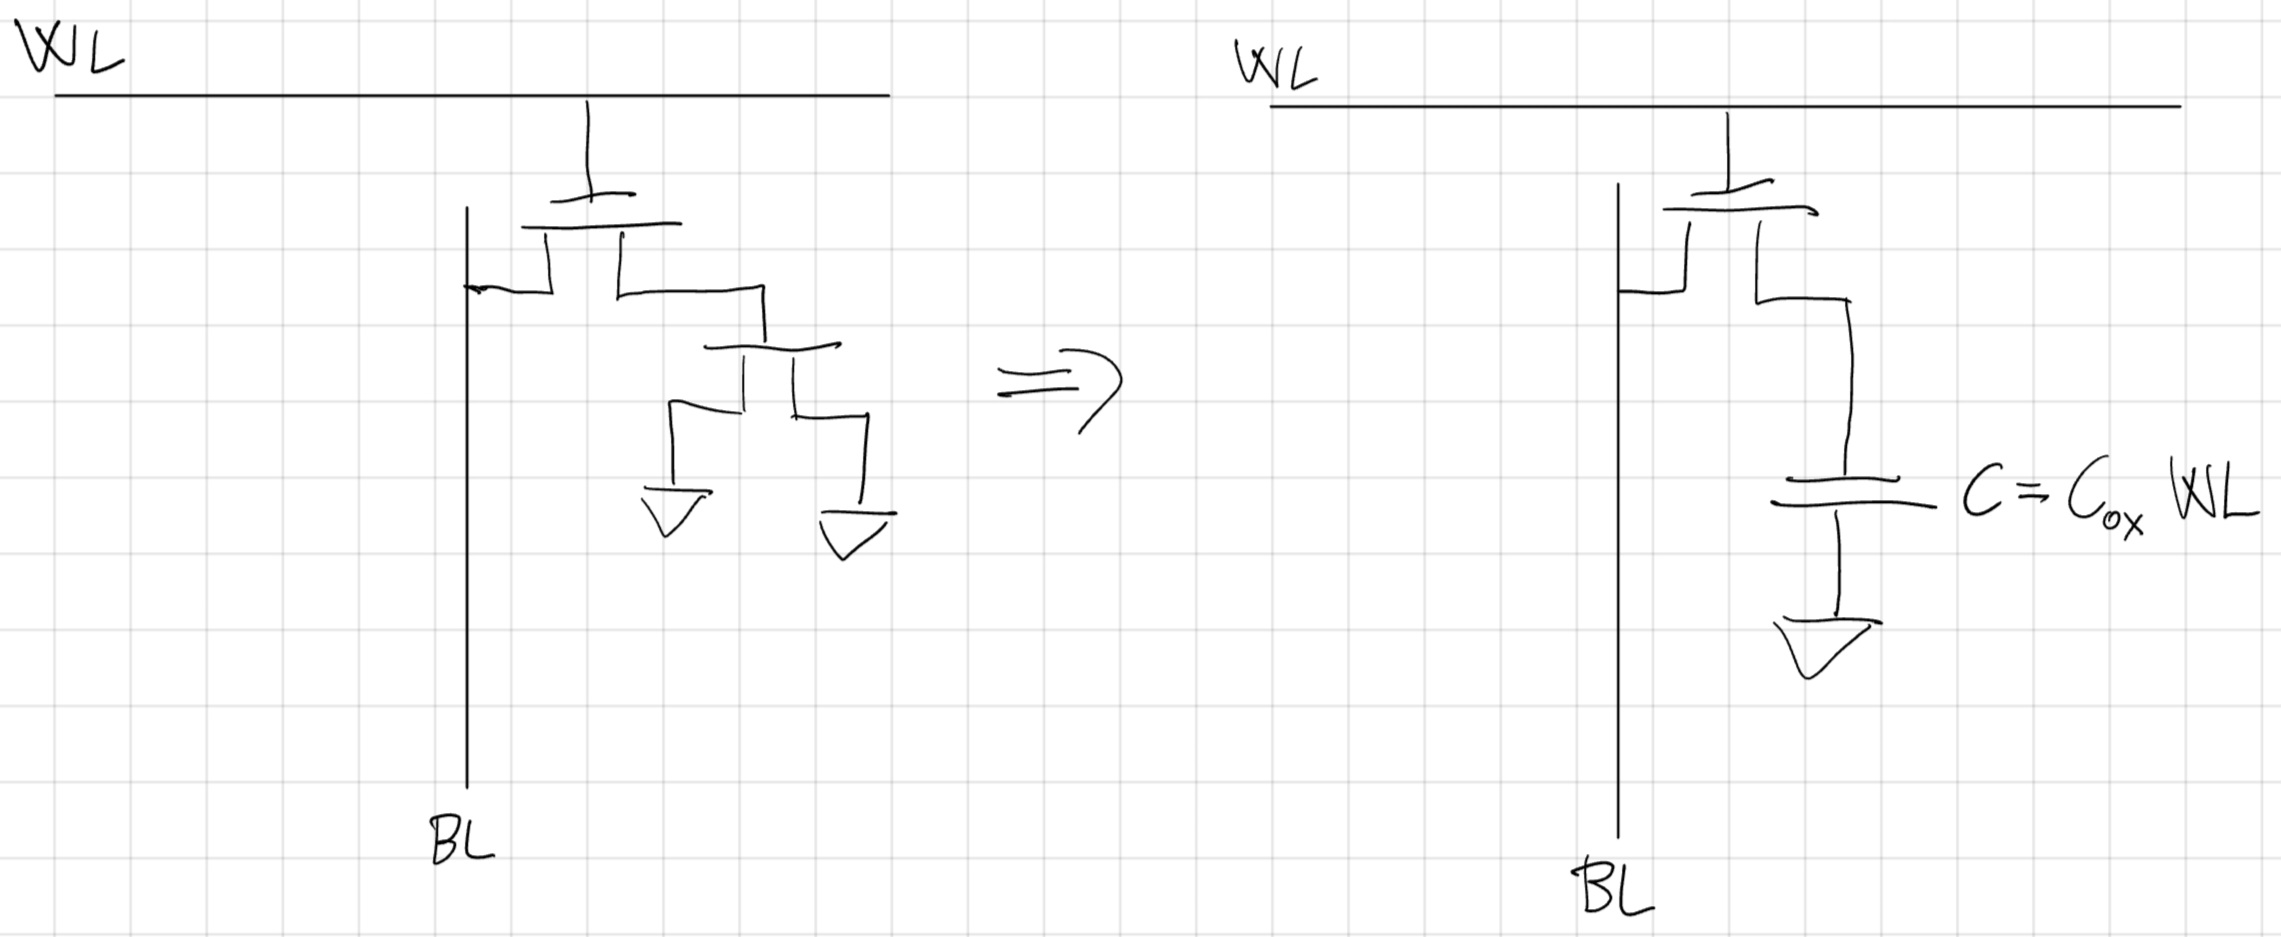 WL
BL
WL
C = Cox WL
BL